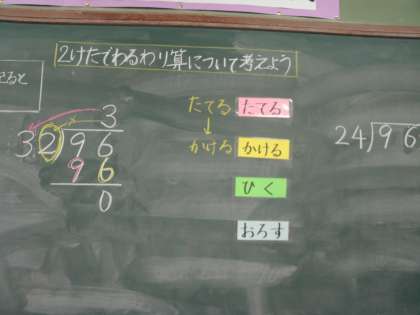 2けたでわるわり算について考えよう
ると
3
32)96
96
0
たてる
↓
かける
たてる
かける
ひく
おろす
24)96